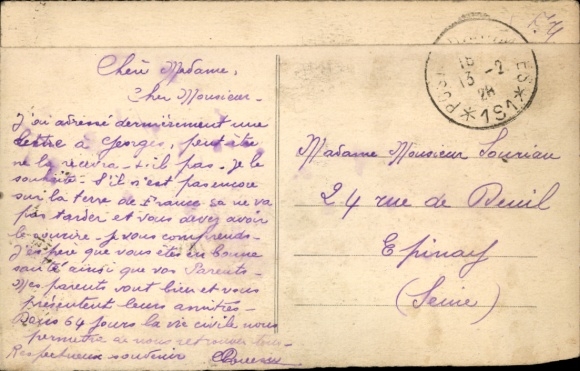 Chère Madame,
Cher Monsieur -
J'ai adressé dernièrement une
lettre à Georges, peut-être
ne la recevra-t-il pas - Je le
souhaite - S'il n'est pas encore
sur la terre de France ça ne va
pas tarder et vous devez avoir
le sourire - Je vous comprends -
J'espère que vous êtes en bonne
santé ainsi que vos Parents -
Mes parents vont bien et vous
présentent leurs amitiés -
Dans 64 jours la vie civile nous
permettra de nous retrouver
Respectueux souvenir
Madame Monsieur Souriau
24 rue de Deuil
Epinay
(Seine)
13 - 2
26
*181*